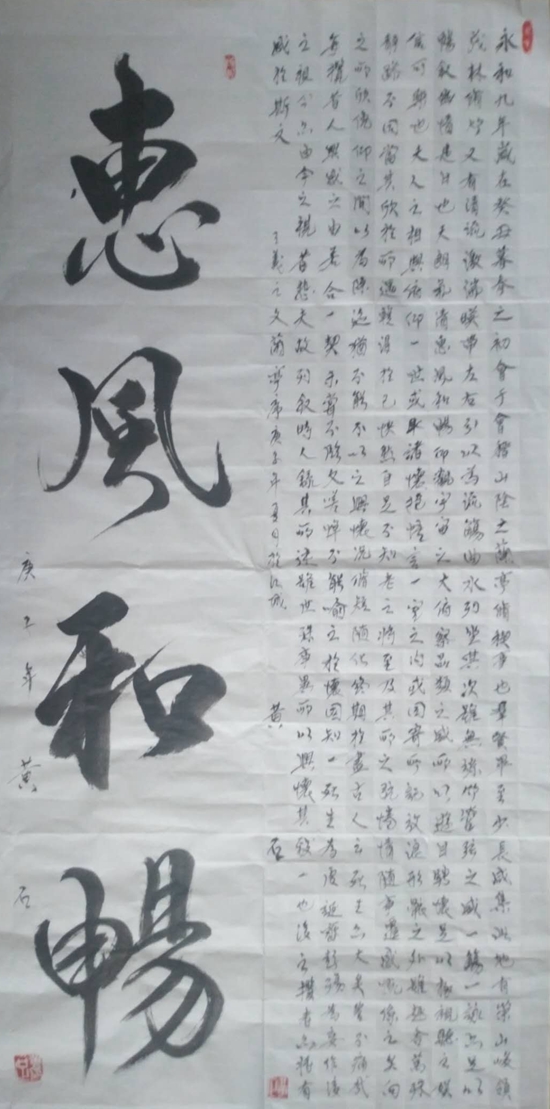 永和九年歲在癸丑暮春之初會于會稽山陰之蘭亭修禊事也羣賢畢至少長咸集此地有崇山峻領
茂林修竹又有清流激湍暎帶左右引以為流觴曲水列坐其次雖無絲竹管弦之盛一觴一詠亦足以
暢敘幽情是日也天朗氣清惠風和暢仰觀宇宙之大俯察品類之盛所以遊目騁懷足以極視聽之娛
信可樂也夫人之相與俯仰一世或取諸懷抱悟言一室之內或因寄所託放浪形骸之外雖趣舍萬殊
靜躁不同當其欣於所遇蹔得於己快然自足不知老之將至及其所之既惓情隨事遷感慨係之矣向
之所欣俛仰之間以為陳迹猶不能不以之興懷況修短隨化終期於盡古人云死生亦大矣豈不痛哉
每攬昔人興感之由若合一契未嘗不臨文嗟悼不能喻之於懷固知一死生為虛誕齊彭殤為妄作後
之視今亦由今之視昔悲夫故列敘時人錄其所述雖世殊事異所以興懷其致一也後之攬者亦將有
感於斯文 王羲之文蘭亭序庚子年夏日於江城 黃石
惠風和暢
庚子年 黃石